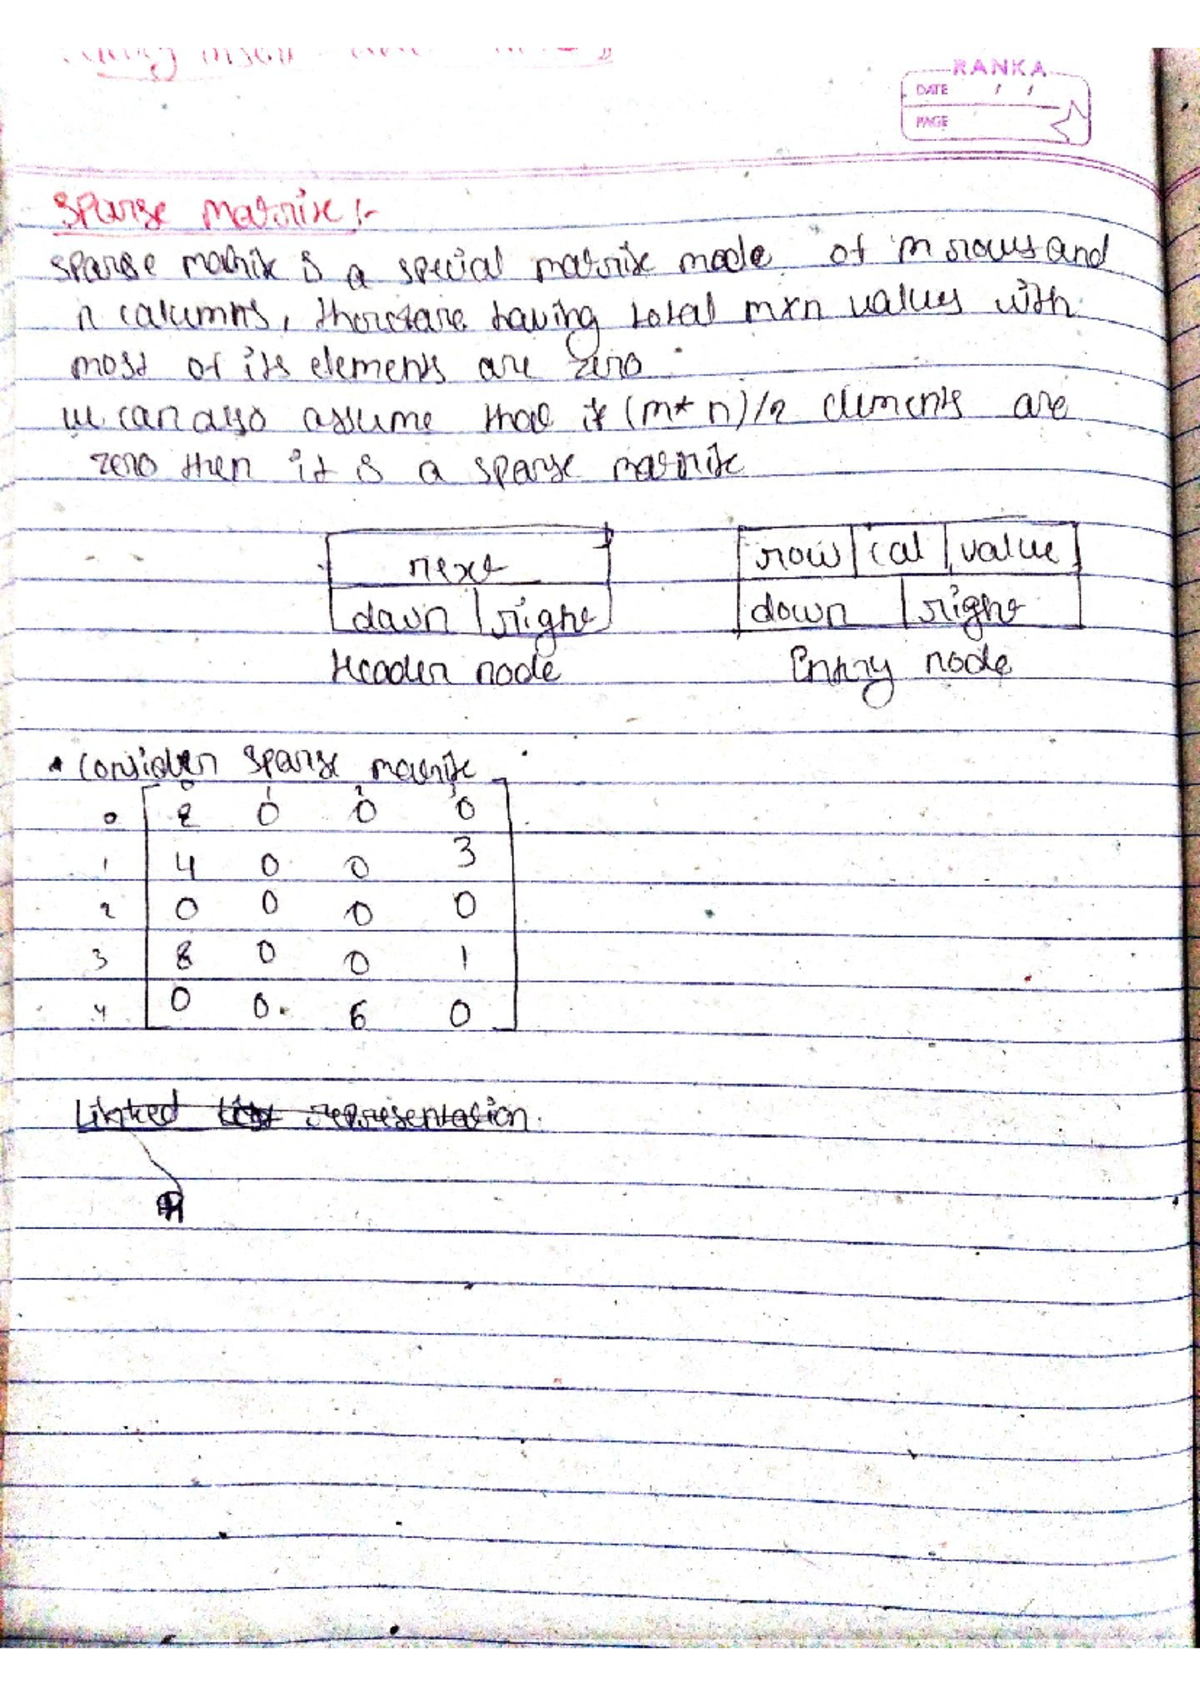 RANKA
DATE / /
PAGE
Sparse matrix :-
sparse matrix is a special matrix made of m rows and
n columns, therefore having total mxn values with
most of its elements are zero.
we can also assume that if (m* n)/2 elements are
zero then it is a sparse matrix
next
down right
Header node
row col value
down right
Entry node
• Consider sparse matrix
0 1 2 3
0 2 0 0 0
1 4 0 0 3
2 0 0 0 0
3 8 0 0 1
4 0 0 6 0
Linked list representation.
H